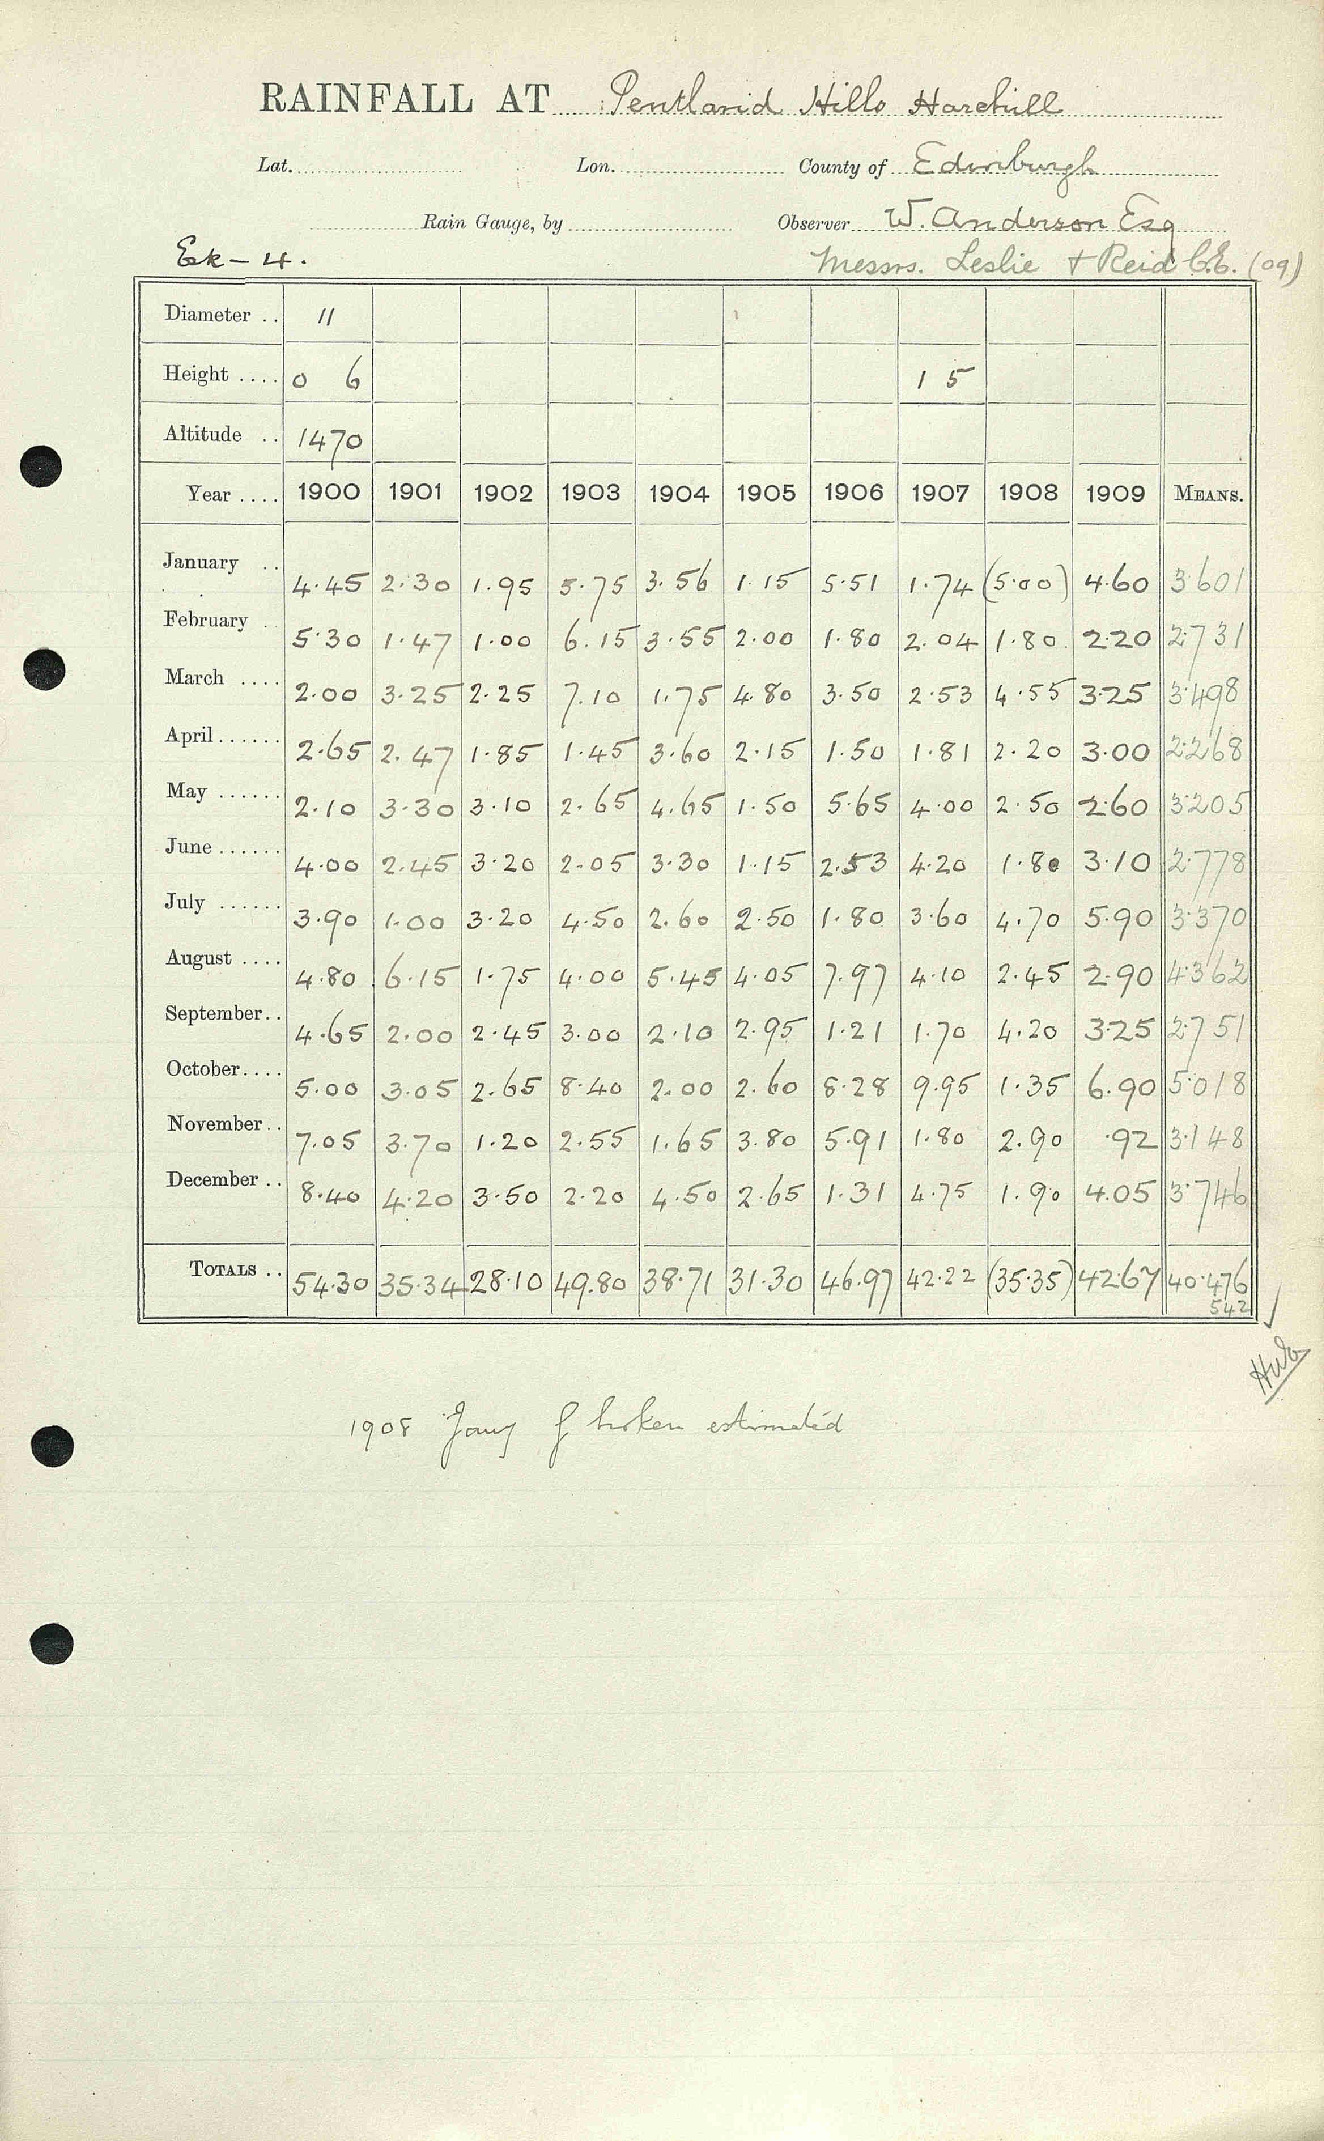 RAINFALL AT Pentland Hills Harehill
Lat. Lon. County of Edinburgh
Rain Gauge, by Observer W. Anderson Esq
Ek - 4. Messrs. Leslie + Reid C.E. (09)
Diameter .. 11
Height .... 0 6 1 5
Altitude .. 1470
Year .... 1900 1901 1902 1903 1904 1905 1906 1907 1908 1909 MEANS.
January .. 4.45 2.30 1.95 5.75 3.56 1.15 5.51 1.74 (5.00) 4.60 3.601
February .. 5.30 1.47 1.00 6.15 3.55 2.00 1.80 2.04 1.80 2.20 2.731
March .... 2.00 3.25 2.25 7.10 1.75 4.80 3.50 2.53 4.55 3.25 3.498
April...... 2.65 2.47 1.85 1.45 3.60 2.15 1.50 1.81 2.20 3.00 2.268
May ...... 2.10 3.30 3.10 2.65 4.65 1.50 5.65 4.00 2.50 2.60 3.205
June ...... 4.00 2.45 3.20 2.05 3.30 1.15 2.53 4.20 1.80 3.10 2.778
July ...... 3.90 1.00 3.20 4.50 2.60 2.50 1.80 3.60 4.70 5.90 3.370
August .... 4.80 6.15 1.75 4.00 5.45 4.05 7.97 4.10 2.45 2.90 4.362
September.. 4.65 2.00 2.45 3.00 2.10 2.95 1.21 1.70 4.20 3.25 2.751
October.... 5.00 3.05 2.65 8.40 2.00 2.60 8.28 9.95 1.35 6.90 5.018
November.. 7.05 3.70 1.20 2.55 1.65 3.80 5.91 1.80 2.90 .92 3.148
December .. 8.40 4.20 3.50 2.20 4.50 2.65 1.31 4.75 1.90 4.05 3.746
TOTALS .. 54.30 35.34 28.10 49.80 38.71 31.30 46.97 42.22 (35.35) 42.67 40.476
542
1908 Jany broken estimated